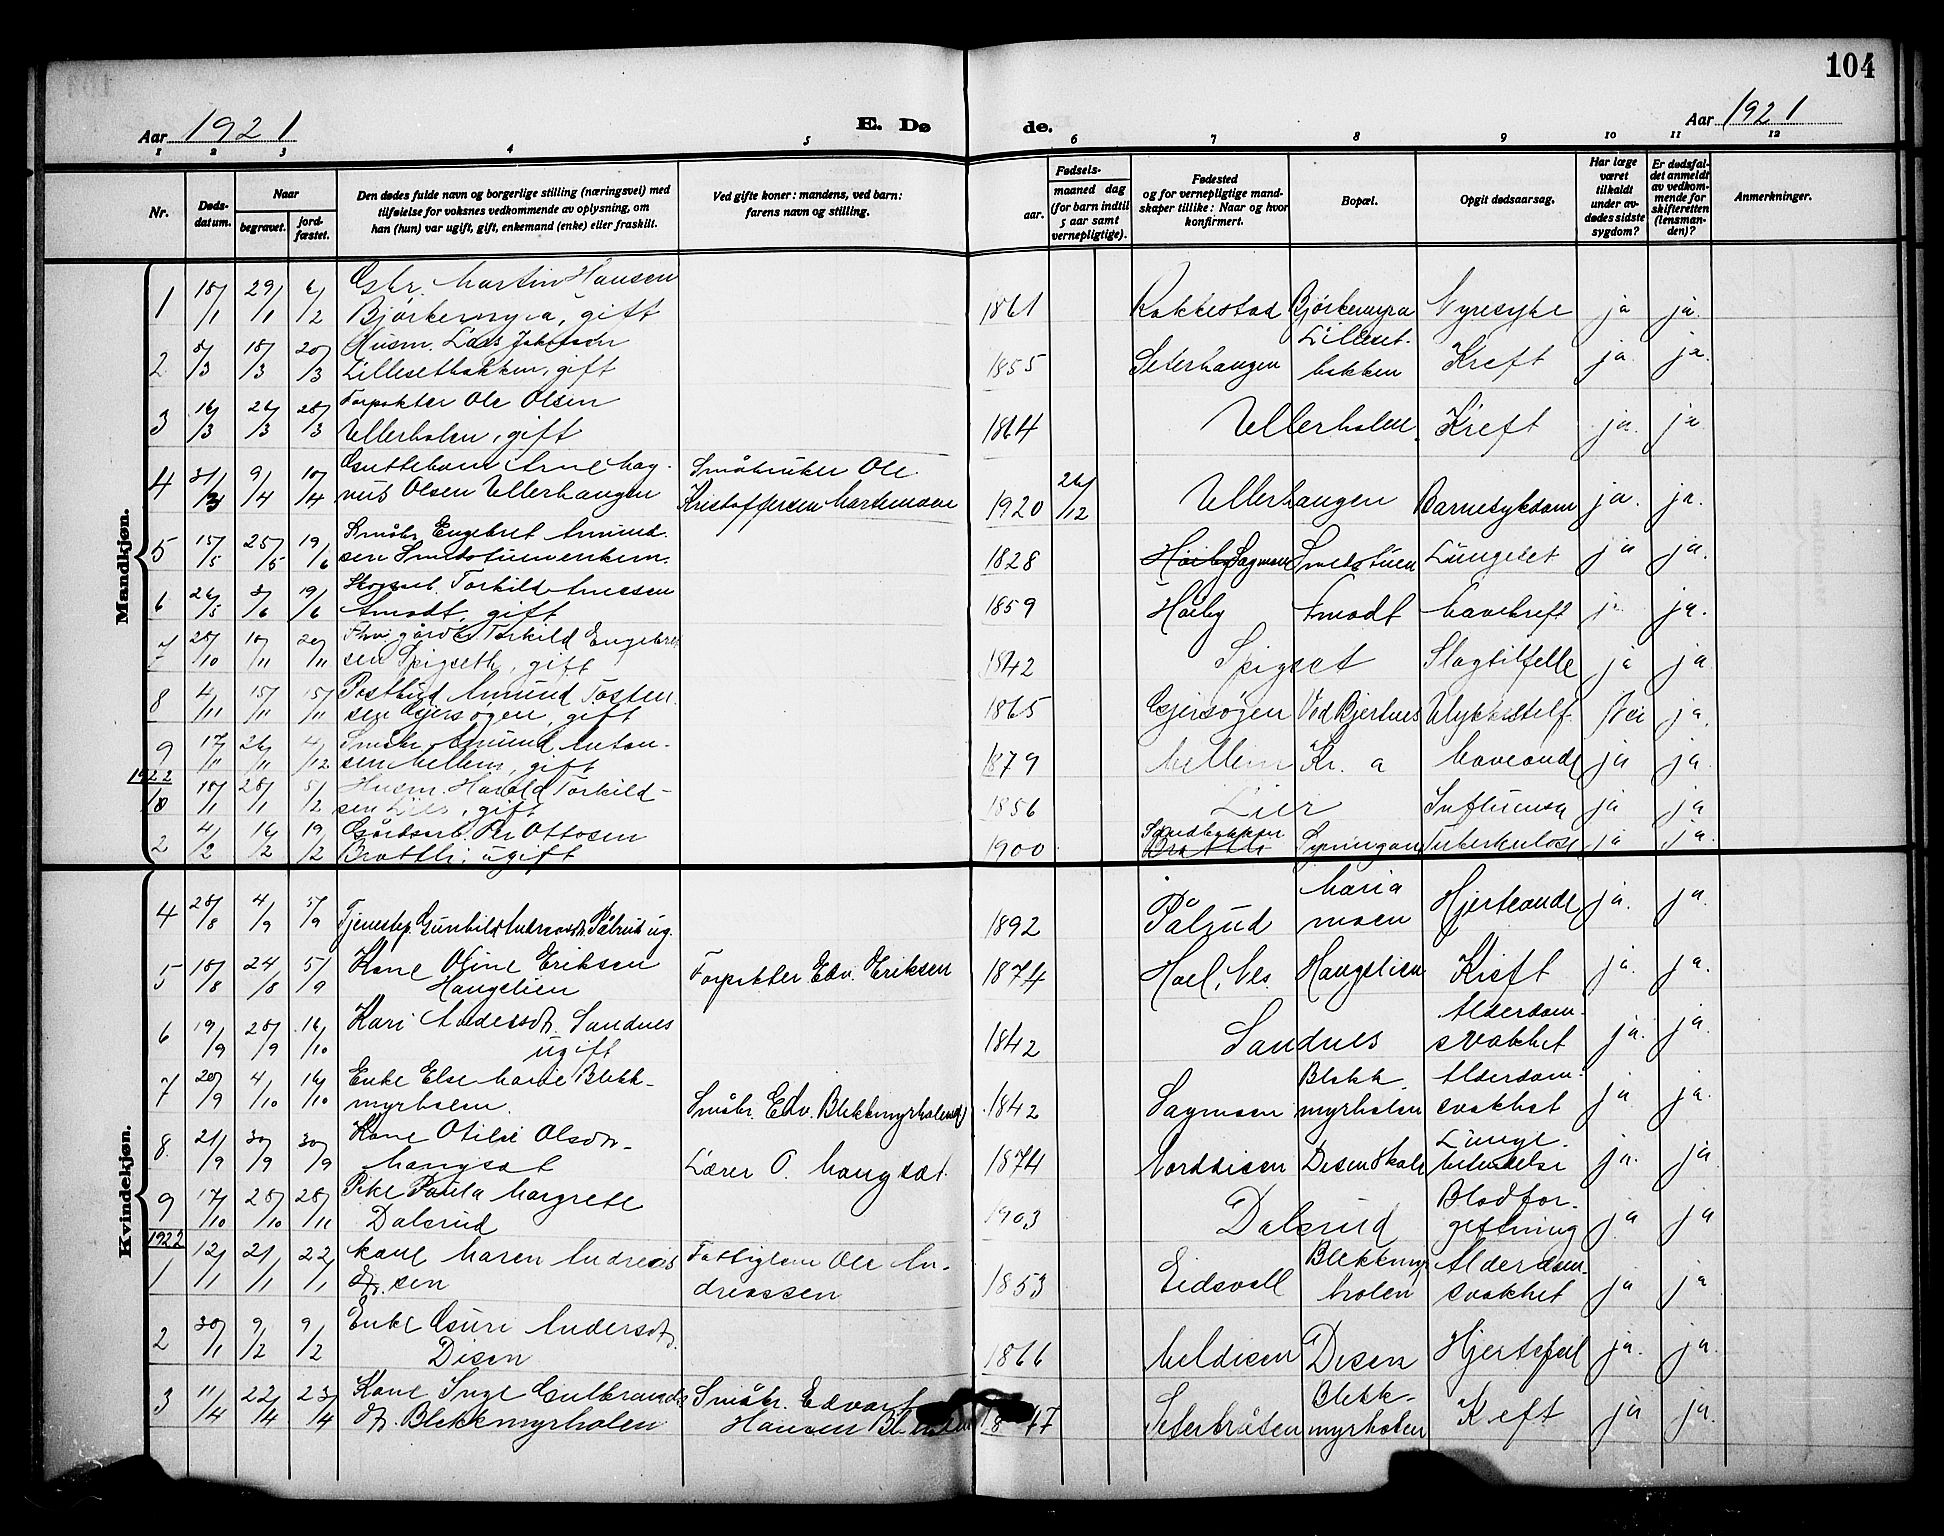 104
Aar 1921
E. Dø
de.
Aar 1921
1 2 3 4 5 6 7 8 9 10 11 12
Nr.
Døds-
datum.
Naar
begravet.
jord-
fæstet.
Den dødes fulde navn og borgerlige stilling (næringsvei) med
tilføielse for voksnes vedkommende av oplysning, om
han (hun) var ugift, gift, enkemand (enke) eller fraskilt.
Ved gifte koner: mandens, ved barn:
farens navn og stilling.
Fødsels-
aar.
maaned dag
(for barn indtil
5 aar samt
vernepligtige).
Fødested
og for vernepligtige mand-
skaper tillike: Naar og hvor
konfirmert.
Bopæl.
Opgit dødsaarsag.
Har læge
været
tilkaldt
under av-
dødes sidste
sygdom?
Er dødsfal-
det anmeldt
av vedkom-
mende for
skifteretten
(lensman-
den)?
Anmerkninger.
Mandkjøn.
1 18/1 29/1 6/2 Gbr. Martin Hansen
Bjørkemyra, gift 1861 Rakkestad Bjørkemyra Nyresyke ja ja.
2 8/3 18/3 20/3 Husm. Lars Johansen
Lillesetbakken, gift 1855 Seterhaugen Lilleset-
bakken Kreft ja ja.
3 16/3 26/3 28/3 Forpakter Ole Olsen
Ullerholen, gift 1864 Ullerholen Kreft ja. ja
4 31/3 9/4 10/4 Guttebarn Arne Mag-
nus Olsen Ullerhaugen Småbruker Ole
Kristoffersen Martemoen 1920 26/12 Ullerhaugen Barnesykdom ja. ja.
5 15/5 25/5 19/6 Småbr. Engebret Amund-
sen Smedstuen enkem. 1828 Sagmoen Smedstuen Lungebet ja ja.
6 26/5 3/6 19/6 Skogsarb. Torkild
Amodt, gift 1859 Høiby Amodt Mavekreft ja.
7 28/10 10/11 20/11 Torkild Engebret-
sen Spigseth, gift 1842 Spigset Slagtilfelle ja ja
8 4/11 15/11 15/11 Postbud Amund Tosten-
sen Gjersøgen, gift 1865 Gjersøgen Ved Bjertnes Ulykkestilf. Nei ja.
9 17/11 26/11 4/12 Småbr. Amund Anton-
sen Mellem, gift 1879 Mellem Kr.a Maveonde ja ja
1922
1 18/1 28/1 5/2 Husm. Harald Torkild-
sen Lier, gift 1856 Lier Influensa ja ja
2 4/2 16/2 19/2 Gårdsarb. Per Ottosen
Brattli, ugift 1900 Sandbakken
Brattli Tuberkulose ja ja.
Kvindekjøn.
4 28/8 4/9 5/9 Tjenestep. Gunhild Andreasdr. Pålsrud ug. 1892 Pålsrud Maria
moen Hjerteonde ja. ja.
5 18/8 24/8 5/9 Kone Oline Eriksen
Haugslien Forpakter Edv. Eriksen 1874 Hoel, Nes Haugslien Kreft ja. ja.
6 19/9 28/9 16/10 Kari Andersdr. Sandnes
ugift 1842 Sandnes Alderdom-
svakhet ja. ja.
7 20/9 4/10 16/10 Enke Else Marie Blekk-
myrholen. Småbr. Edv. Blekkmyrholen 1842 Sagmoen Blekk-
myrholen Alderdom-
svakhet ja ja.
8 21/9 30/9 30/9 Kone Otilie Olsdr.
Haugsæt Lærer O. Haugsæt 1874 Norddisen Disen Skole Lunge-
betendelse ja. ja
9 17/10 28/10 28/11 Pike Paula Margrete
Dalsrud 1903 Dalsrud Blodfor-
giftning ja ja
1922
1 12/1 21/1 22/1 Kone Maren Andreas
sen Fattiglem Ole An-
dreassen 1853 Eidsvoll Blekkmyr
holen Alderdom-
svakhet ja ja
2 30/1 9/2 9/2 Enke Guri Andersdtr.
Disen 1866 Meldisen Disen Hjertefeil ja. ja.
3 11/4 22/4 23/4 Kone Inge Gulbrands
dtr. Blekkmyrholen Småbr. Edvart
Hansen Seterbråten Blekk-
myrholen Kreft ja ja.